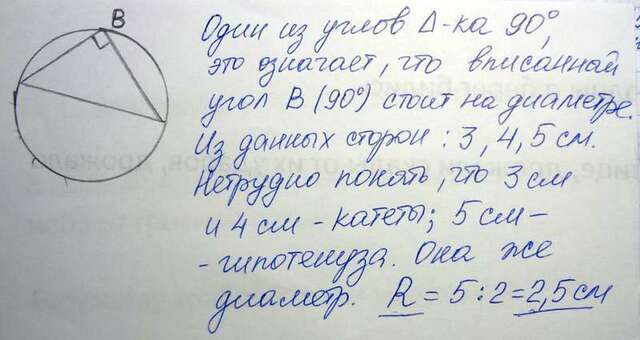 B
Один из углов Δ-ка 90°,
это означает, что вписанный
угол В (90°) стоит на диаметре.
Из данных сторон: 3, 4, 5 см.
Нетрудно понять, что 3 см
и 4 см - катеты; 5 см -
- гипотенуза. Она же
диаметр. R = 5:2=2,5 см